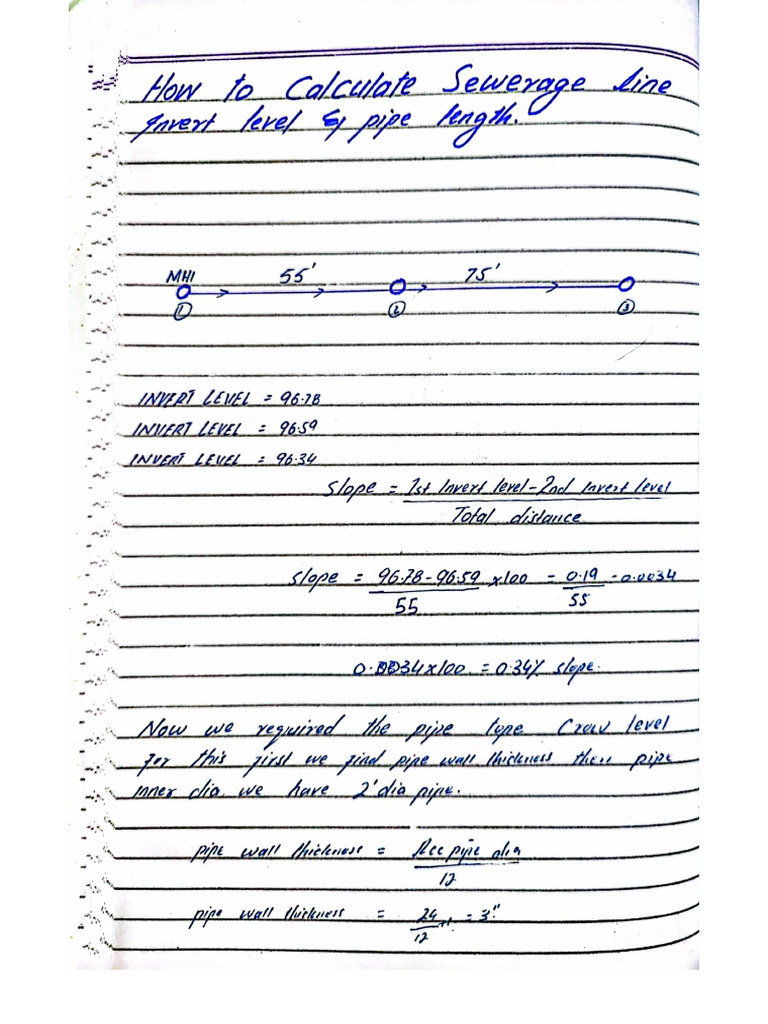 How to Calculate Sewerage line
Invert level & pipe length.
MH1 55' 75'
① ② ③
INVERT LEVEL = 96.78
INVERT LEVEL = 96.59
INVERT LEVEL = 96.34
Slope = 1st Invert level - 2nd Invert level
Total distance
Slope = 96.78 - 96.59 x100 = 0.19 = 0.0034
55 55
0.0034x100 = 0.34% slope.
Now we required the pipe tope Crown level
for this first we find pipe wall thickness then pipe
inner dia we have 2' dia pipe.
pipe wall thickness = Rcc pipe dia
12
pipe wall thickness = 24 +1 = 3"
12